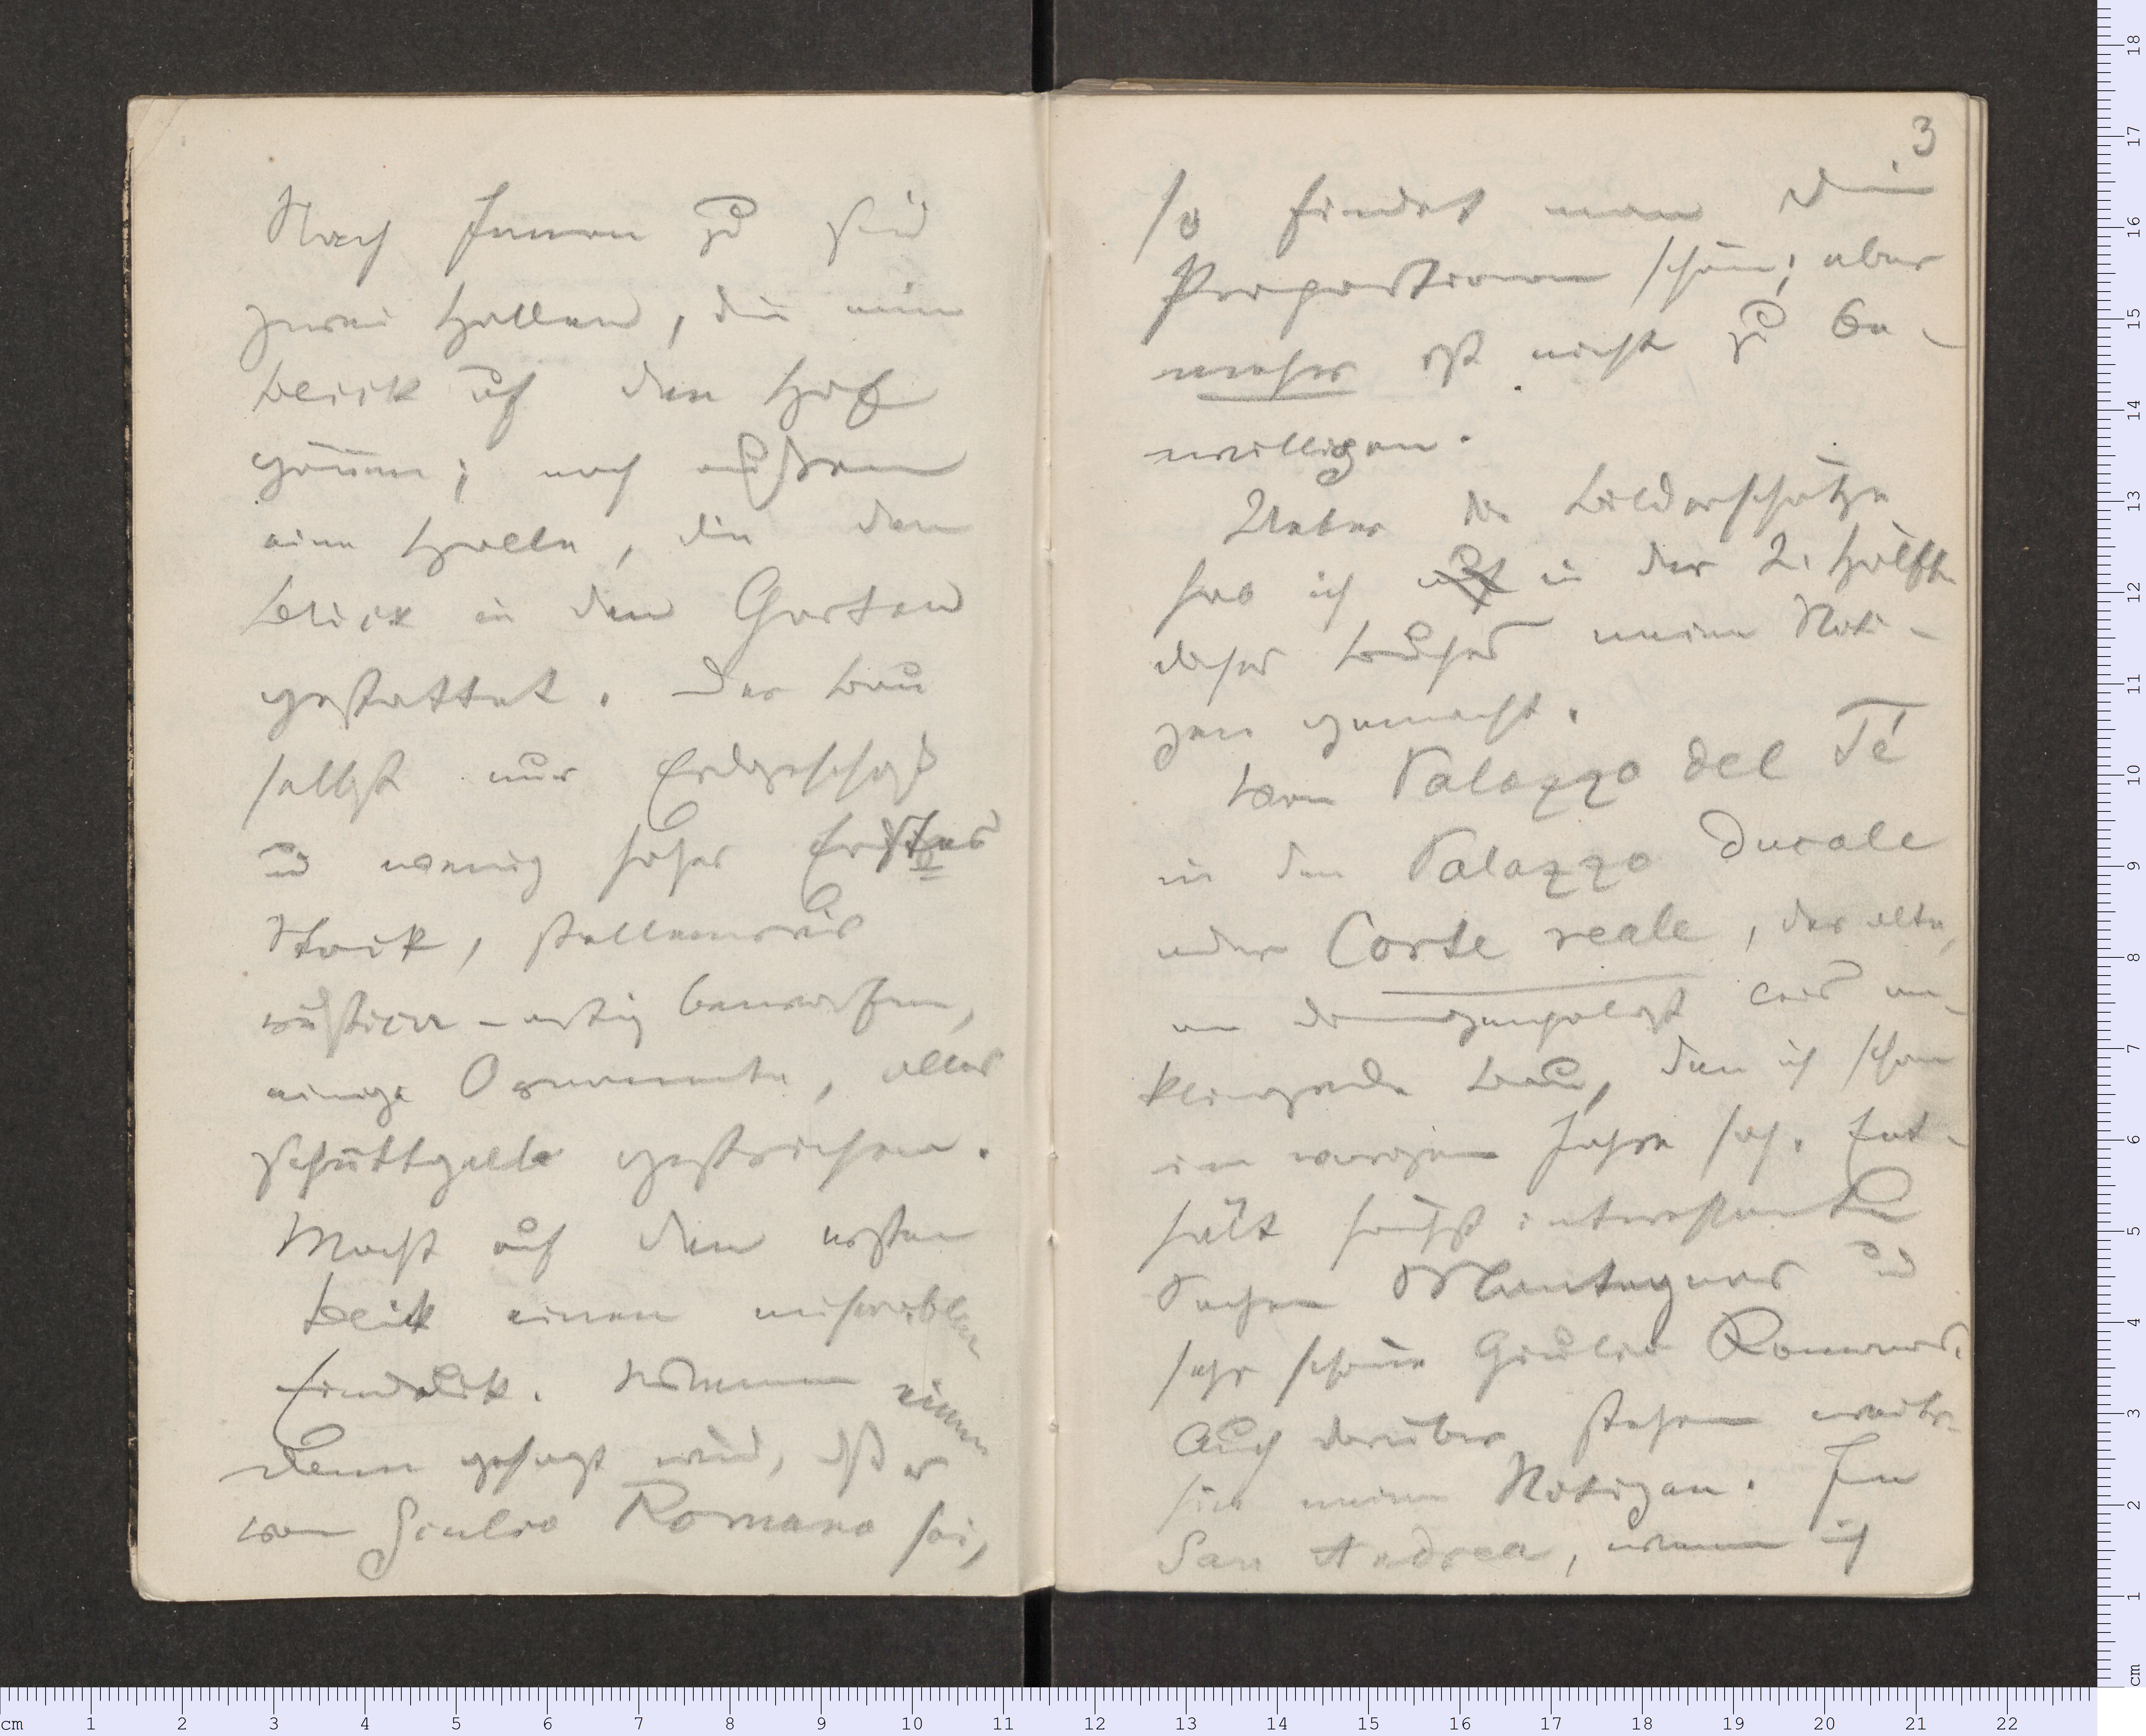 Nach Innen zu sind
zwei Hallen, die einen
Blick auf den Hof
gönnen; nach außen
eine Halle, die den
Blick in den Garten
gestattet. Der Bau
selbst nur Erdgeschoß
u wenig hoher Erster
Stock, stellenweis
rustica-artig beworfen,
einige Ornamente, alles
schüttgelb gestrichen.
Macht auf den ersten
Blick einen miserablen
Eindruck. Wenn einem
denn gesagt wird, dß er
von Giulio Romano sei,
3
so findet man die
Proportionen schön; aber
mehr ist nicht zu be-
willigen.
Ueber die Bilderschätze
hab ich in der 2. Hälfte
dieses Buches meine Noti-
zen gemacht.
Vom Palazzo del Té
in den Palazzo Ducale
oder Corte reale, der alte,
an
klingende Bau, den ich schon
im vorigen Jahre sah. Ent-
hält höchst interessante
Sachen Mantegnas u
sehr schöne Giulio Romanos.
Auch darüber stehen weiter-
hin meine Notizen. In
San Andrea, wenn ich